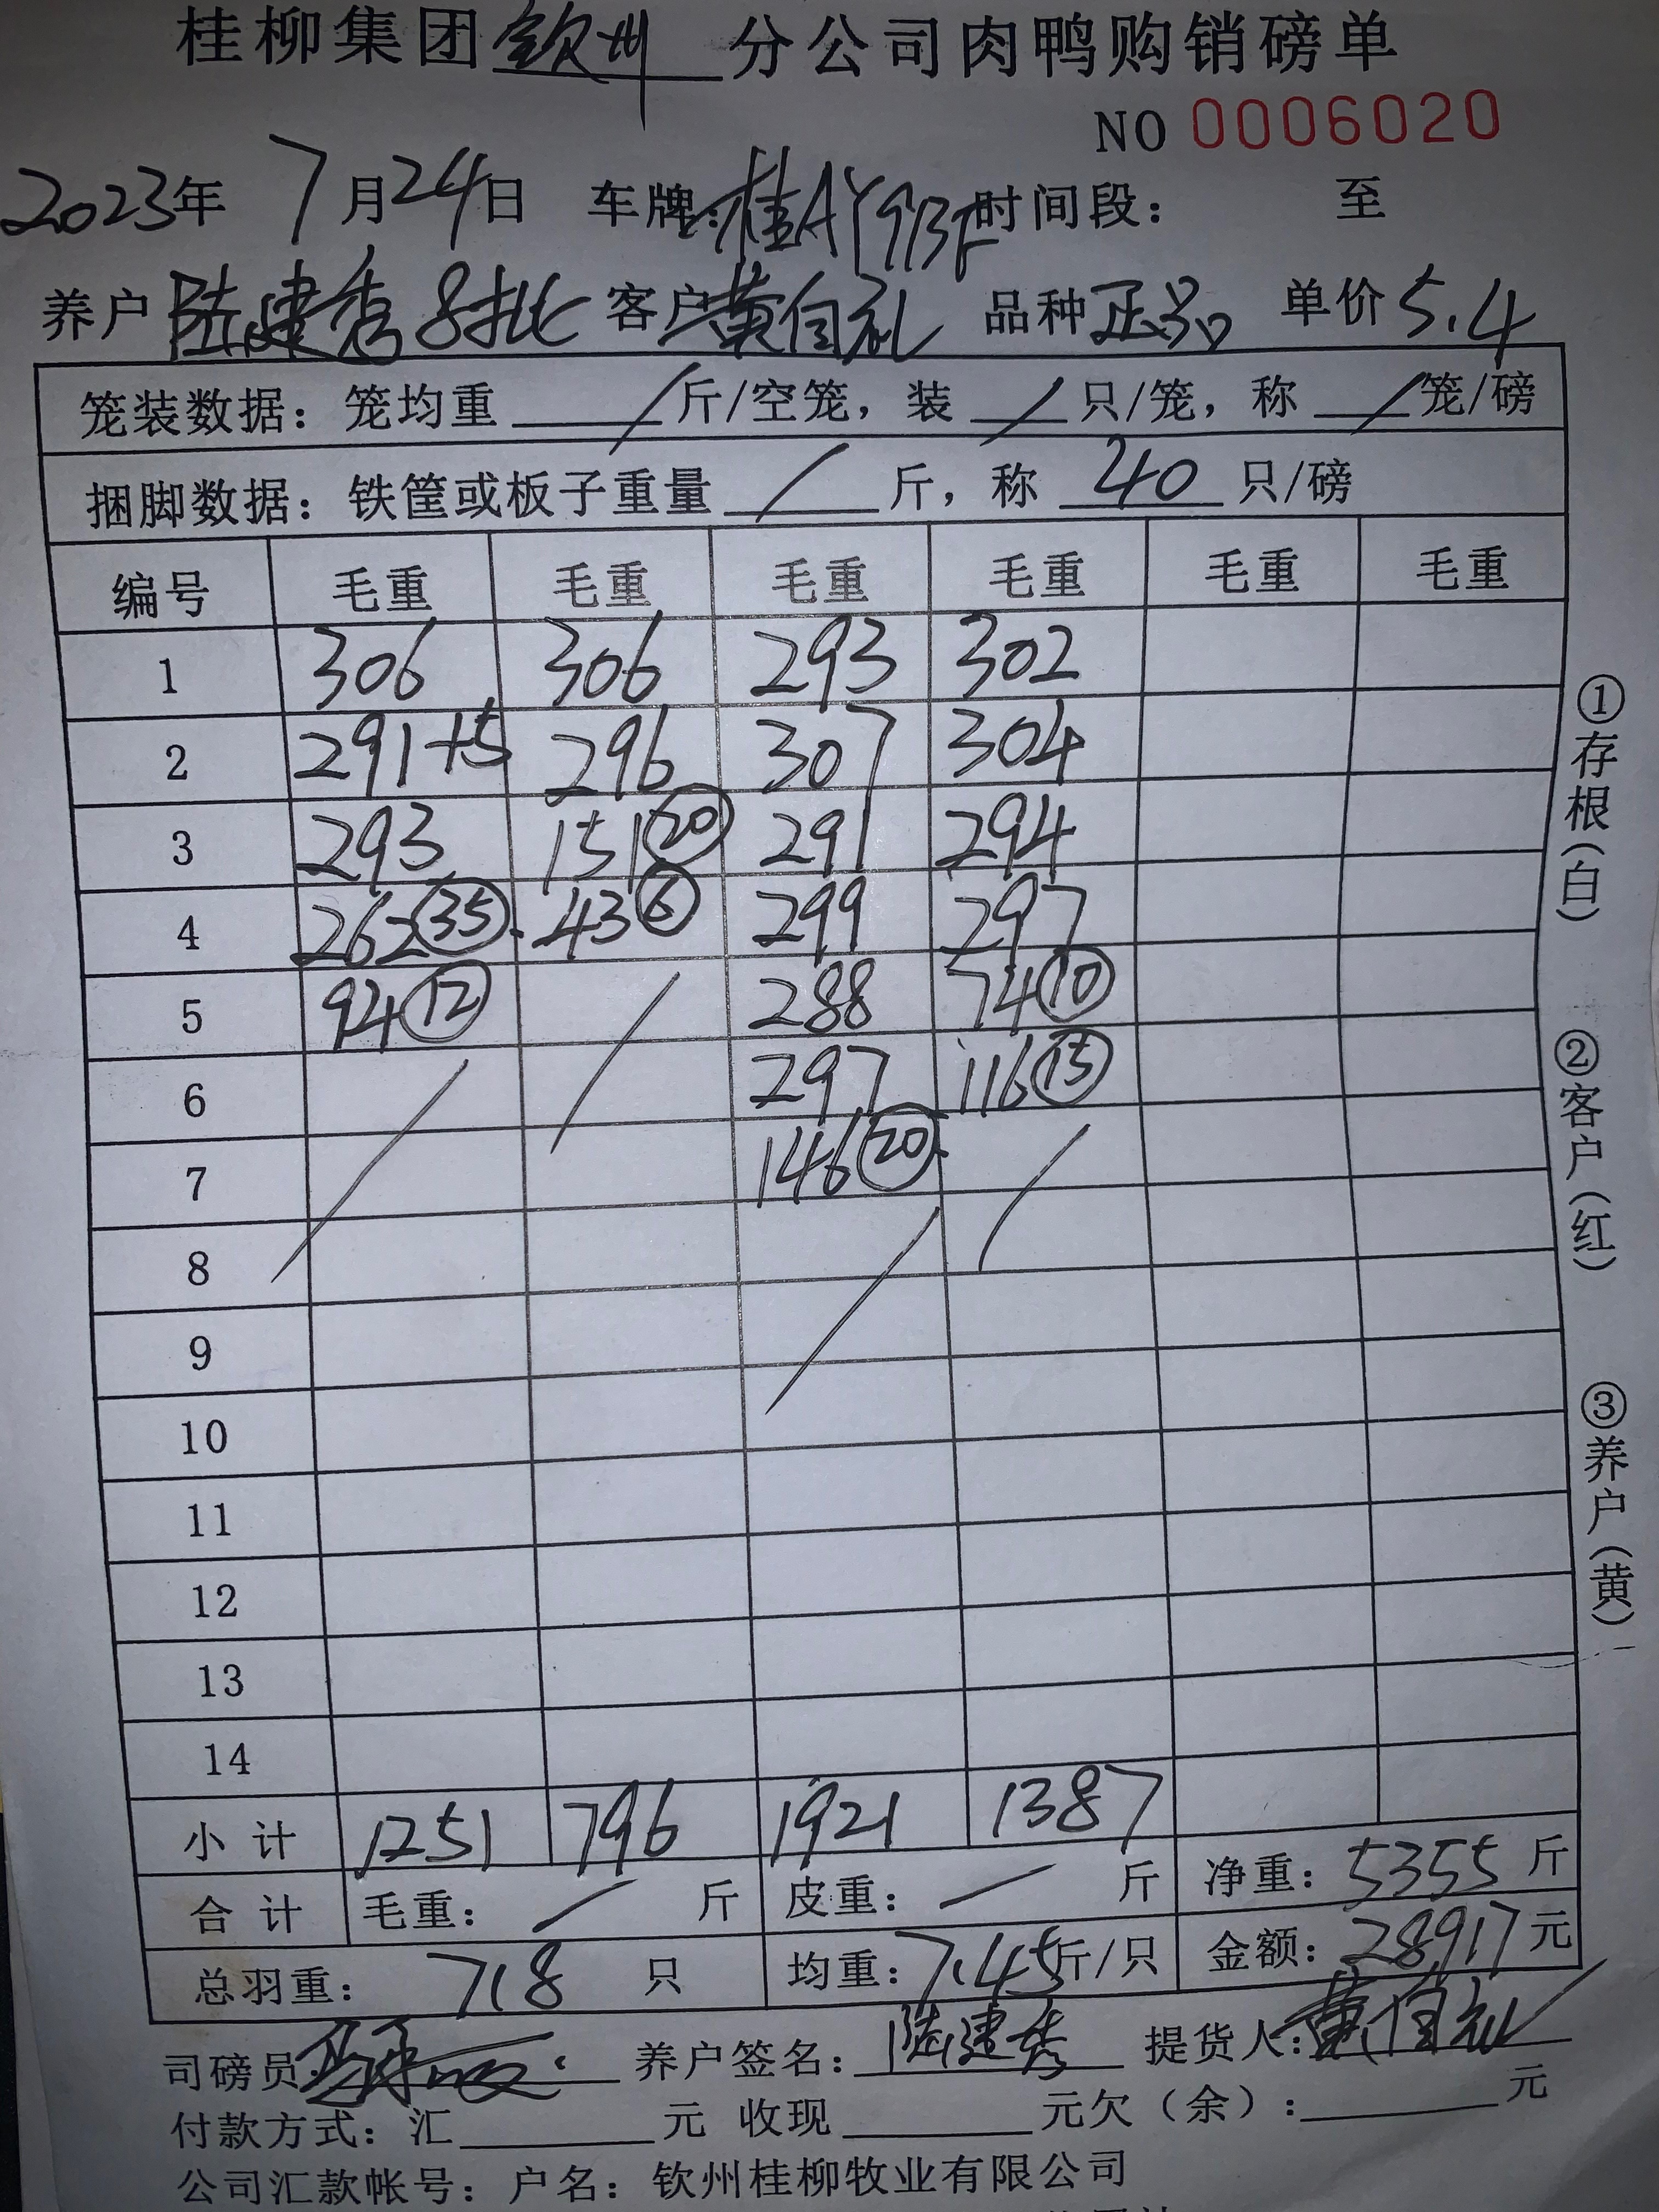 桂柳集团钦州分公司肉鸭购销磅单
NO 0006020
2023年 7月24日 车牌:桂AY913F 时间段: 至
养户 陆建秀8批 客户 黄自礼 品种 正品 单价 5.4
笼装数据: 笼均重 / 斤/空笼, 装 / 只/笼, 称 / 笼/磅
捆脚数据: 铁筐或板子重量 / 斤, 称 40 只/磅
编号 毛重 毛重 毛重 毛重 毛重 毛重
1 306 306 293 302
2 291+5 296 307 304
3 293 151⑳ 291 294
4 262㉟ 43⑥ 299 297
5 94⑫ 288 74⑩
6 297 116⑮
7 146⑳
8
9
10
11
12
13
14
小计 1251 796 1921 1387
合计 毛重: / 斤 皮重: / 斤 净重: 5355 斤
总羽重: 718 只 均重: 7.45斤/只 金额: 28917元
司磅员: 养户签名: 陆建秀 提货人: 黄自礼
付款方式: 汇 元 收现 元欠(余): 元
公司汇款帐号: 户名: 钦州桂柳牧业有限公司
①存根(白)
②客户(红)
③养户(黄)